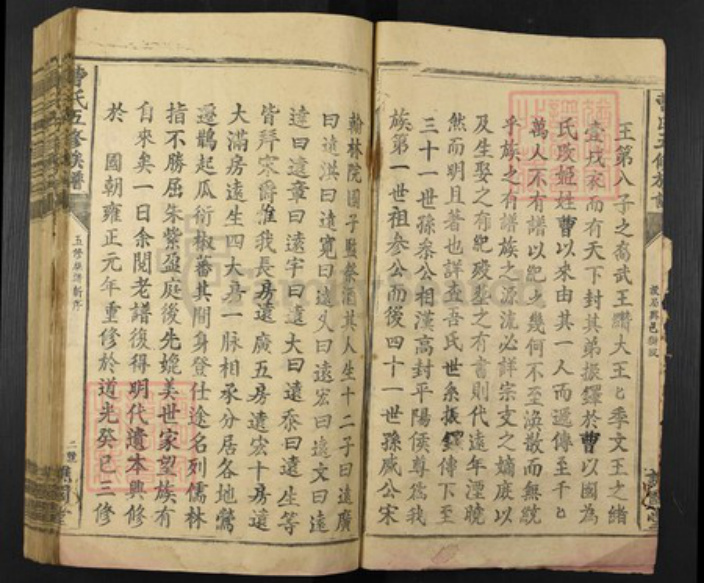 王第八子之裔武王纘大王王季文王之緒
壹戎衣而有天下封其弟振鐸於曹以國為
氏改姬姓曹以來由其一人而遞傳至千
萬人不有譜以紀之幾何不至渙散而無統
乎族之有譜族之源流必詳宗支之嫡庶以
及生娶之有紀歿塟之有書則代遠年湮曉
然而明且著也詳查吾氏世系振鐸傳下至
三十一世孫叅公相漢高封平陽侯尊為我
族第一世祖参公而後四十一世孫威公宋
翰林院國子監祭酒其人生十二子曰遠廣
曰遠洪曰遠寬曰遠乂曰遠宏曰遠文曰遠
達曰遠章曰遠宇曰遠大曰遠泰曰遠生等
皆拜宋爵惟我長房遠廣五房遠宏十房遠
大滿房遠生四大房一脈相承分居各地鶯
遷鵲起瓜衍椒蕃其間身登仕途名列儒林
指不勝屈朱紫盈庭後先媲美世家望族有
自來矣一日余閱老譜復得明代遺本興修
於 國朝雍正元年重修於道光癸巳三修
曹氏五修族譜
五修族譜新序
二號